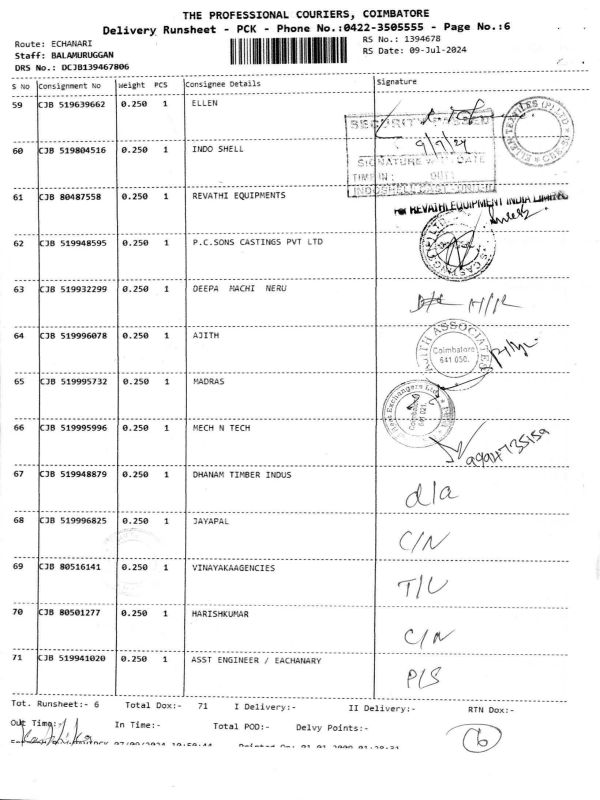 THE PROFESSIONAL COURIERS, COIMBATORE
Delivery Runsheet - PCK - Phone No.:0422-3505555 - Page No.:6
Route: ECHANARI
RS No.: 1394678
Staff: BALAMURUGGAN
RS Date: 09-Jul-2024
DRS No.: DCJB139467806
S No Consignment No Weight PCS Consignee Details Signature
59 CJB 519639662 0.250 1 ELLEN
SIGNATURE WITH DATE
9/7/24
TIME IN : OUT :
60 CJB 519804516 0.250 1 INDO SHELL
61 CJB 80487558 0.250 1 REVATHI EQUIPMENTS
For REVATHI EQUIPMENT INDIA LIMITED
62 CJB 519948595 0.250 1 P.C.SONS CASTINGS PVT LTD
63 CJB 519932299 0.250 1 DEEPA MACHI NERU
64 CJB 519996078 0.250 1 AJITH
AJITH ASSOCIATES
Coimbatore
641 050.
65 CJB 519995732 0.250 1 MADRAS
66 CJB 519995996 0.250 1 MECH N TECH
9994735159
67 CJB 519948879 0.250 1 DHANAM TIMBER INDUS
d/a
68 CJB 519996825 0.250 1 JAYAPAL
C/N
69 CJB 80516141 0.250 1 VINAYAKAAGENCIES
T/U
70 CJB 80501277 0.250 1 HARISHKUMAR
C/N
71 CJB 519941020 0.250 1 ASST ENGINEER / EACHANARY
P/S
Tot. Runsheet:- 6 Total Dox:- 71 I Delivery:- II Delivery:- RTN Dox:-
Out Time:- In Time:- Total POD:- Delvy Points:-
6